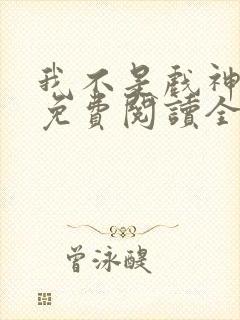 我不是戲神
免費閱讀全
曾泳醍